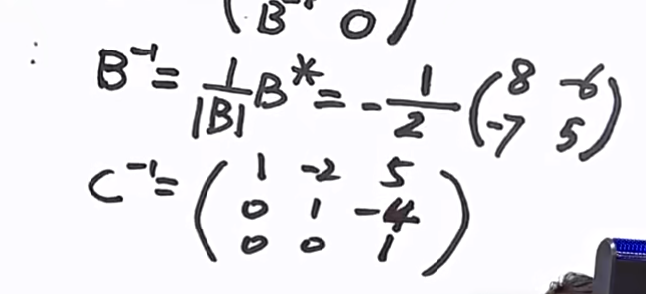 B⁻¹ 0
B⁻¹ = 1/|B| B* = -1/2 (8 -6
-7 5)
C⁻¹ = (1 -2 5
0 1 -4
0 0 1)